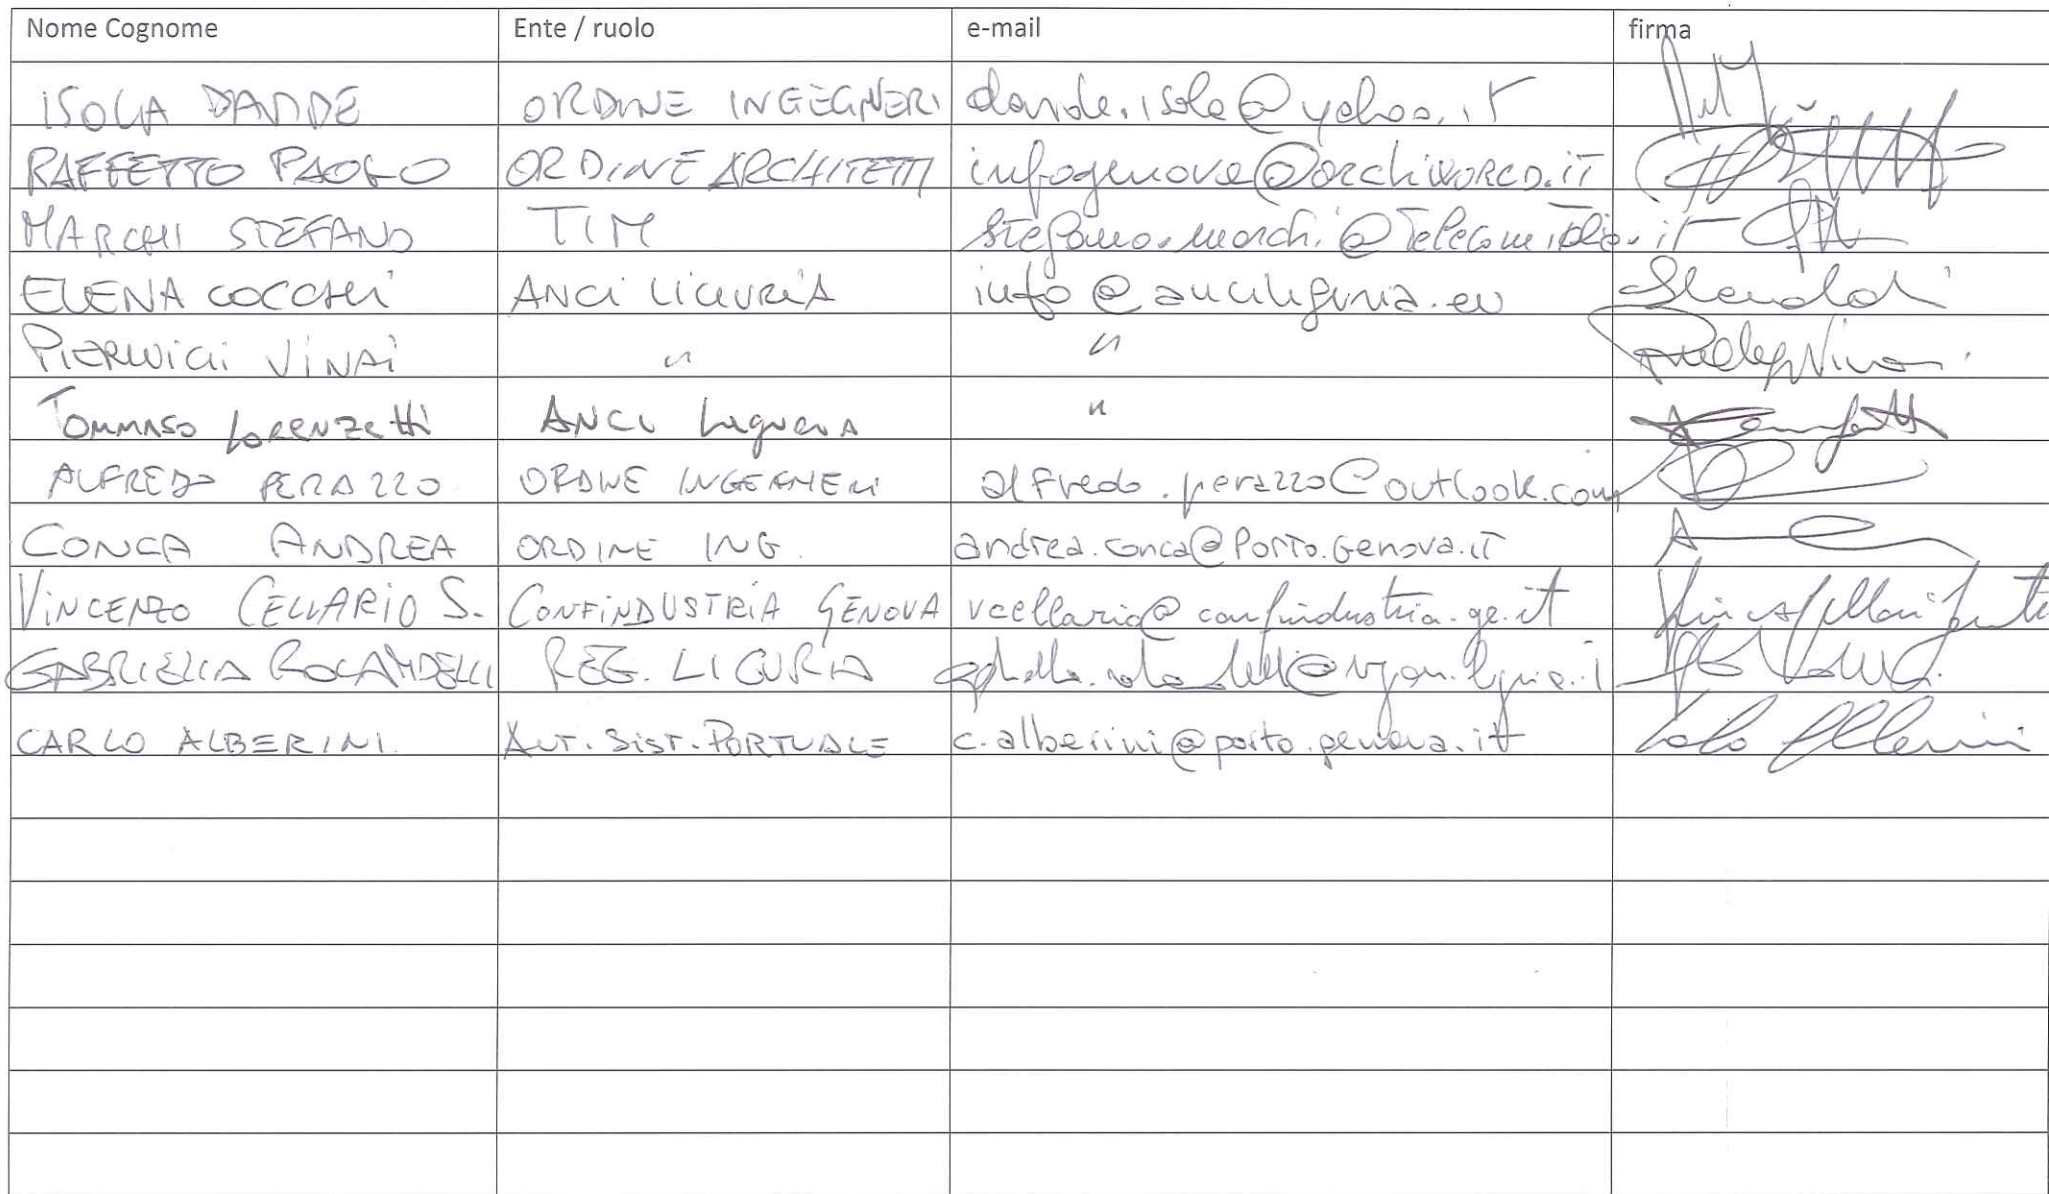 Nome Cognome Ente / ruolo e-mail firma
ISOLA DAVIDE ORDINE INGEGNERI davide.isola@yahoo.it
RAFFETTO PAOLO ORDINE ARCHITETTI infogenova@archiworld.it
MARCHI STEFANO TIM stefano.marchi@telecomitalia.it
ELENA COCCHI ANCI LIGURIA info@anciliguria.eu
PIERLUIGI VINAI " "
TOMMASO LORENZETTI ANCI Liguria "
ALFREDO PERAZZO ORDINE INGEGNERI alfredo.perazzo@outlook.com
CONCA ANDREA ORDINE ING. andrea.conca@porto.genova.it
VINCENZO CELLARIO S. CONFINDUSTRIA GENOVA vcellario@confindustria.ge.it
GABRIELLA ROLANDELLI REG. LIGURIA
CARLO ALBERINI AUT. SIST. PORTUALE c.alberini@porto.genova.it Carlo Alberini